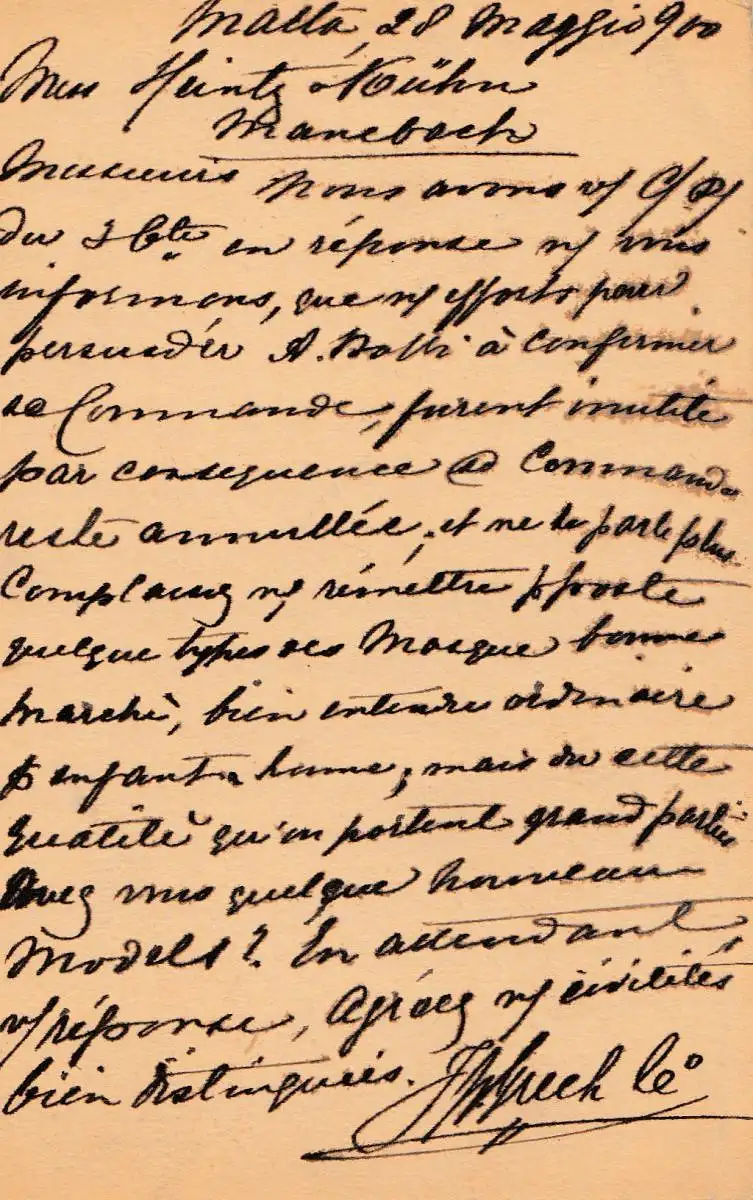 Malta, 28 Maggio 900
Mess Heintz & Kühn
Manebach
Messieurs Nous avons v/ C/P/
du en réponse n/ vous
informons, que n/ efforts pour
persuadér A. à Confirmer
sa Commande, furent inutile
par consequence sa Command
reste annullée, et ne du parle plus
Complaisez n/ rémettre p poste
quelque types des Masque bonne
marchè, bien entendu ordinaire
p enfant & homme, mais du cette
qualitè qu'on portent grand partie
Avez vous quelque nouveau
Models? En attendant
v/ réponse, Agréez n/ civilités
bien distinguées. Grech Co